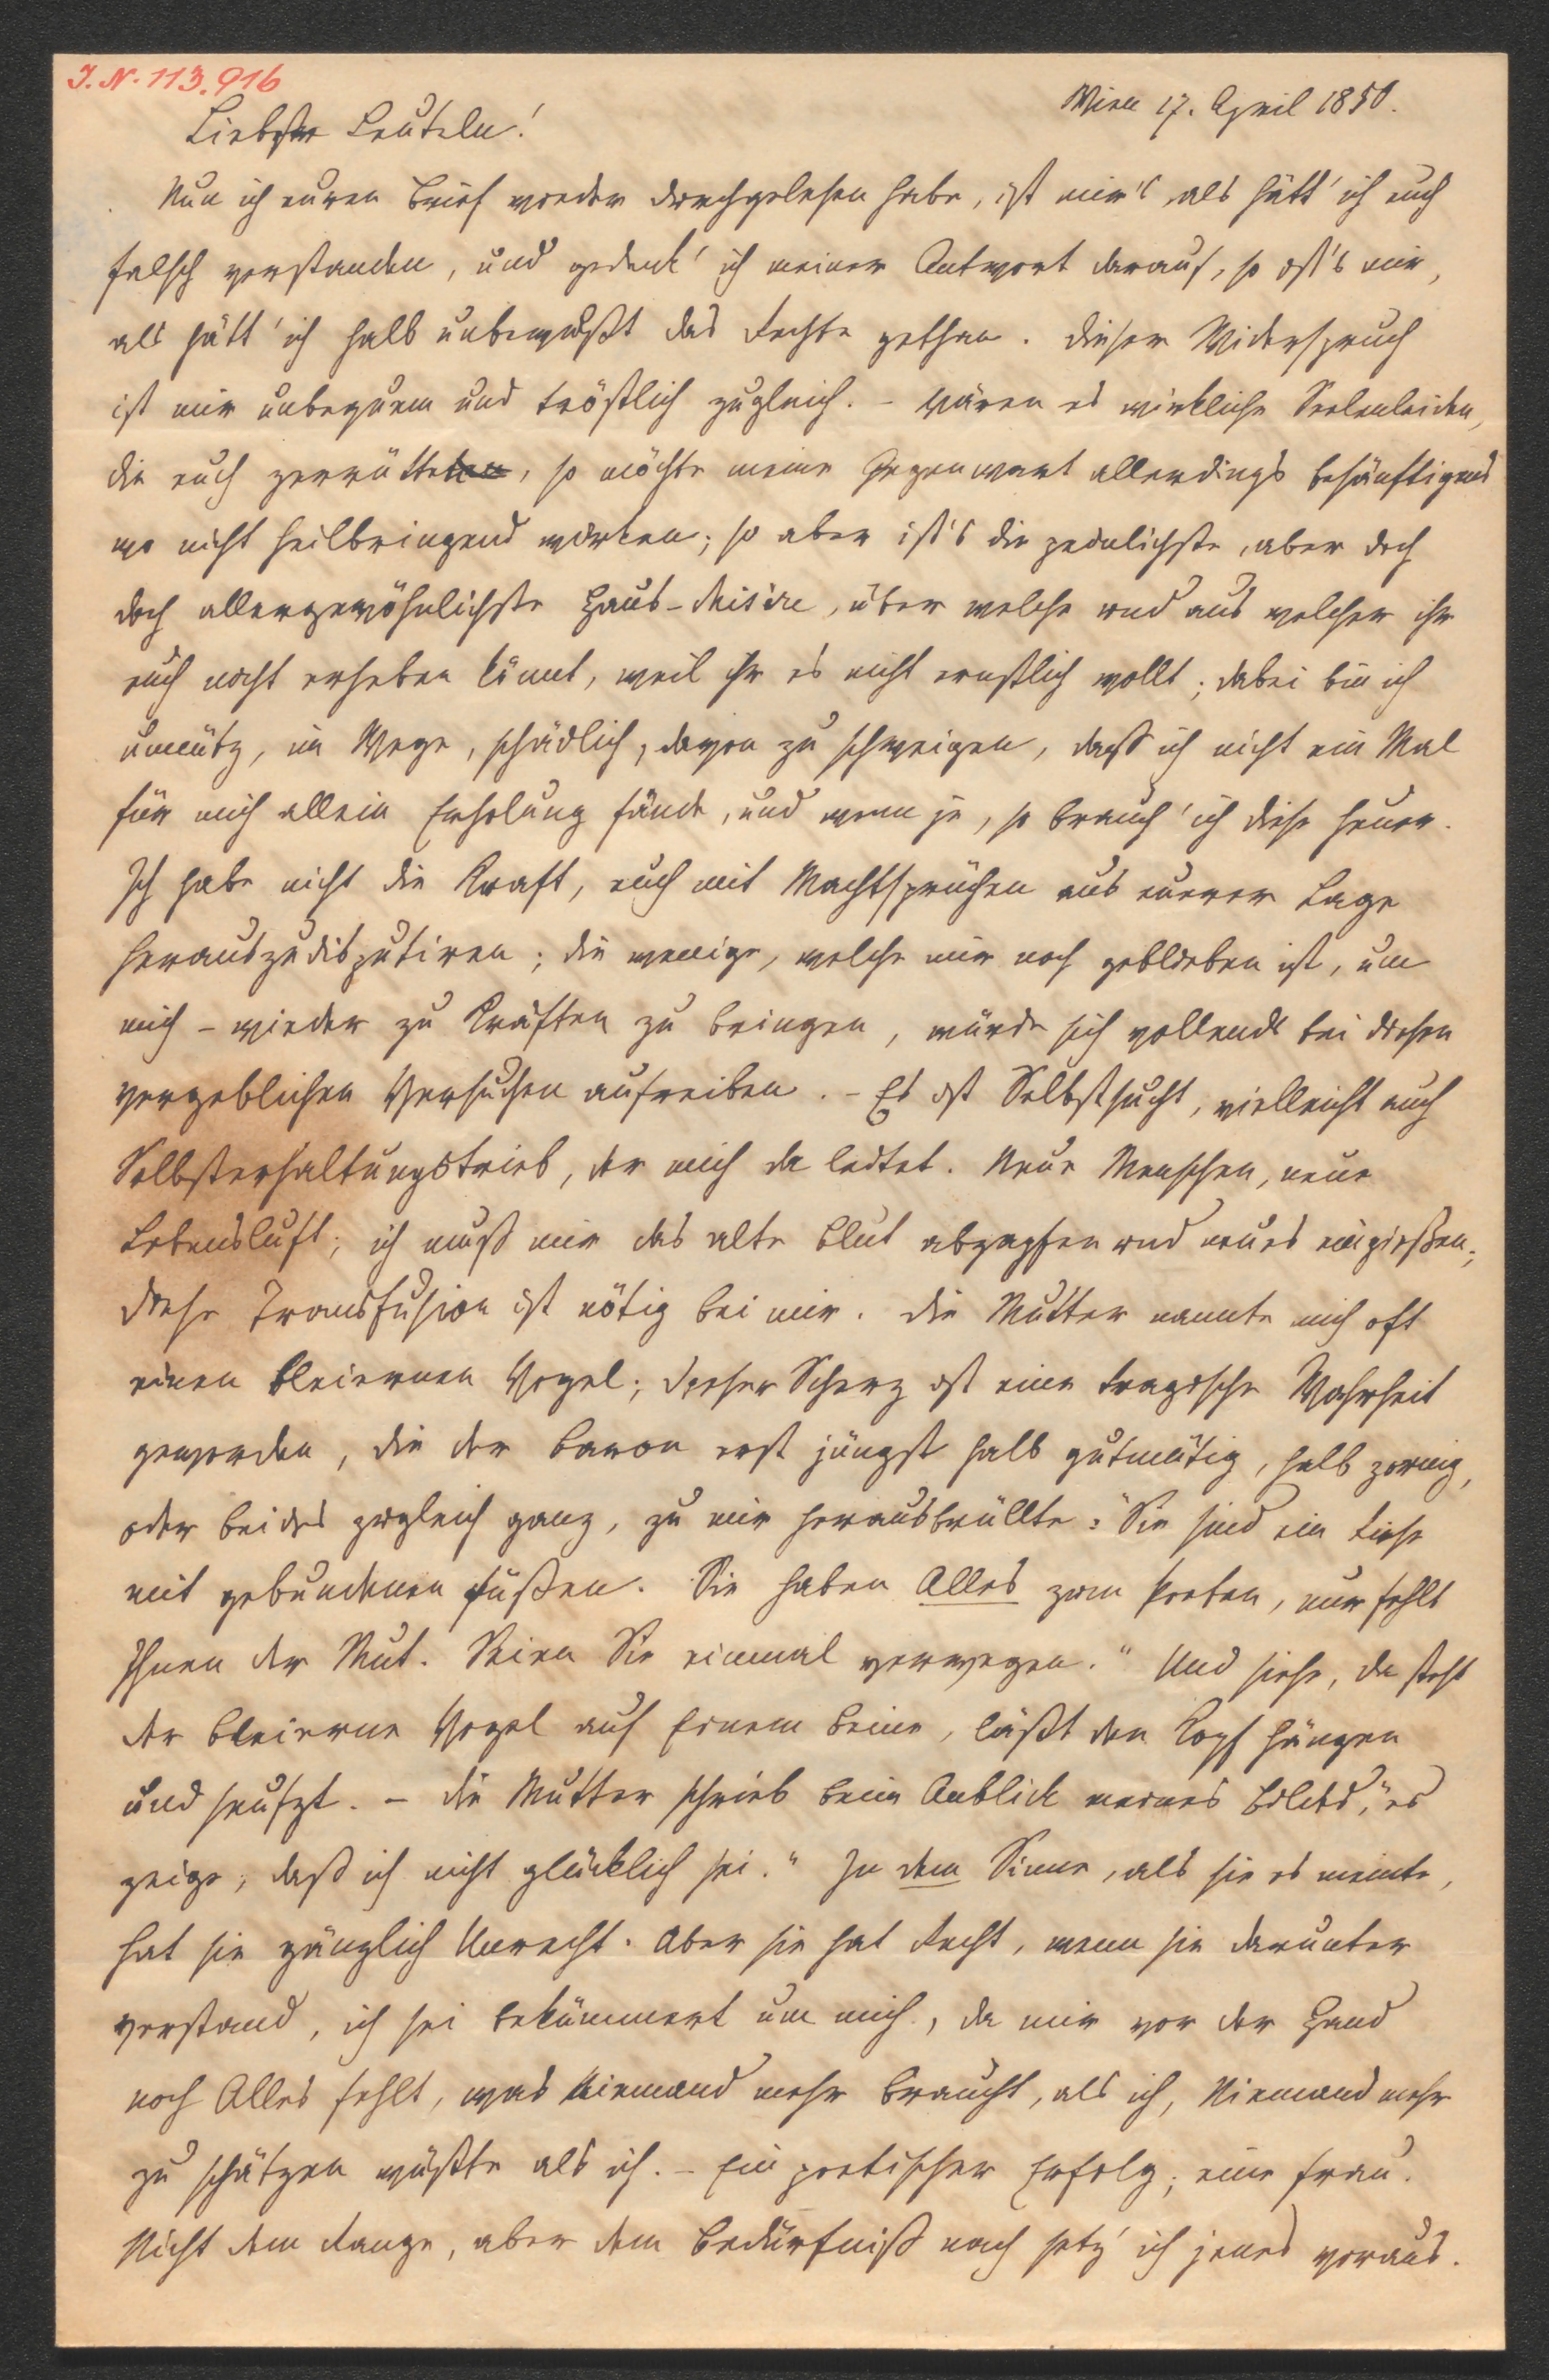 J. N. 113.916
Wien 17. April 1850.
Liebste Leuteln!
Nun ich euren Brief wieder durchgelesen habe, ist mir's, als hätt' ich euch
falsch verstanden, und gedenk' ich meiner Antwort darauf, so ist's mir,
als hätt' ich halb unbewußt das Rechte gethan. Dieser Widerspruch
ist mir unbequem und tröstlich zugleich. – Wären es wirkliche Seelenleiden,
die euch zerrütteten, so möchte meine Gegenwart allerdings besänftigend
wo nicht heilbringend wirken; so aber ist's die peinlichste, aber doch
doch allergewöhnlichste Haus-Misère, über welche und aus welcher ihr
euch nicht erheben könnt, weil ihr es nicht ernstlich wollt; dabei bin ich
unnütz, im Wege, schädlich, davon zu schweigen, dass ich nicht ein Mal
für mich allein Erholung fände, und wenn je, so brauch' ich diese heuer.
Ich habe nicht die Kraft, euch mit Machtsprüchen aus eurer Lage
herauszudisputiren; die wenige, welche mir noch geblieben ist, um
mich – wieder zu Kräften zu bringen, würde sich vollends bei diesen
vergeblichen Versuchen aufreiben. – Es ist Selbstsucht, vielleicht auch
Selbsterhaltungstrieb, der mich da leitet. Neue Menschen, neue
Lebensluft; ich muß mir das alte Blut abzapfen und neues eingießen;
diese Transfusion ist nötig bei mir. Die Mutter nannte mich oft
einen bleiernen Vogel; dieser Scherz ist eine tragische Wahrheit
geworden, die der Baron erst jüngst halb gutmütig, halb zornig,
oder beides zugleich ganz, zu mir herausbrüllte: "Sie sind ein Riese
mit gebundenen Füßen. Sie haben Alles zum Poeten, nur fehlt
Ihnen der Mut. Seien Sie einmal verwegen." Und siehe, da steht
der bleierne Vogel auf Einem Beine, läßt den Kopf hängen
und seufzt. – Die Mutter schrieb beim Anblick meines Bildes, "es
zeige, daß ich nicht glücklich sei." In dem Sinne, als sie es meinte,
hat sie gänzlich Unrecht. Aber sie hat Recht, wenn sie darunter
verstand, ich sei bekümmert um mich, da mir vor der Hand
noch Alles fehlt, was Niemand mehr braucht, als ich, Niemand mehr
zu schätzen wüßte als ich. – Ein poetischer Erfolg; eine Frau.
Nicht dem Range, aber dem Bedürfniß nach setz' ich jenes voraus.